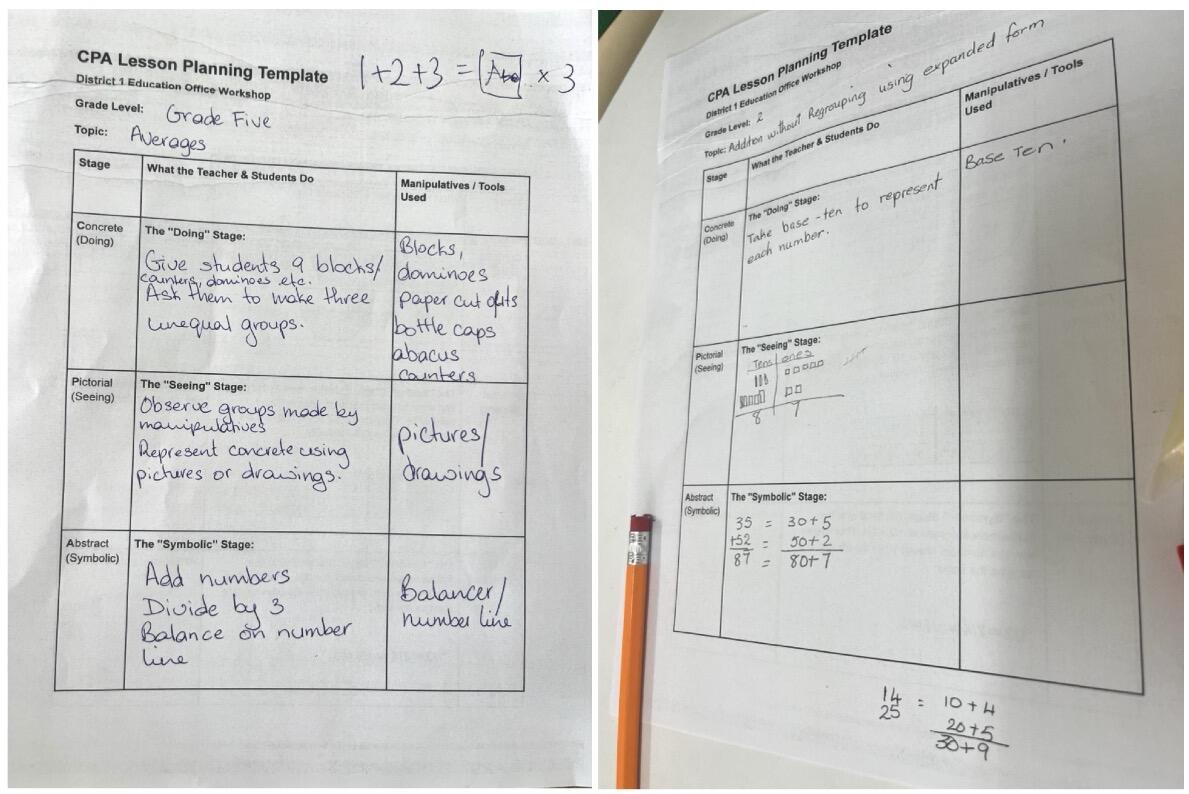 CPA Lesson Planning Template
1+2+3 = × 3
District 1 Education Office Workshop
Grade Level: Grade Five
Topic: Averages
Stage
What the Teacher & Students Do
Manipulatives / Tools
Used
Concrete
(Doing)
The "Doing" Stage:
Give students 9 blocks/
counters, dominoes etc.
Ask them to make three
unequal groups.
Blocks,
dominoes
paper cut outs
bottle caps
abacus
counters
Pictorial
(Seeing)
The "Seeing" Stage:
Observe groups made by
manipulatives
Represent concrete using
pictures or drawings.
pictures/
drawings
Abstract
(Symbolic)
The "Symbolic" Stage:
Add numbers
Divide by 3
Balance on number
line
Balancer/
number line
CPA Lesson Planning Template
District 1 Education Office Workshop
Grade Level: 2
Topic: Addition without Regrouping using expanded form
Stage
What the Teacher & Students Do
Manipulatives / Tools
Used
Concrete
(Doing)
The "Doing" Stage:
Take base-ten to represent
each number.
Base Ten.
Pictorial
(Seeing)
The "Seeing" Stage:
Tens ones
8 7
Abstract
(Symbolic)
The "Symbolic" Stage:
35 = 30+5
+52 = 50+2
87 = 80+7
14 = 10+4
25 20+5
30+9